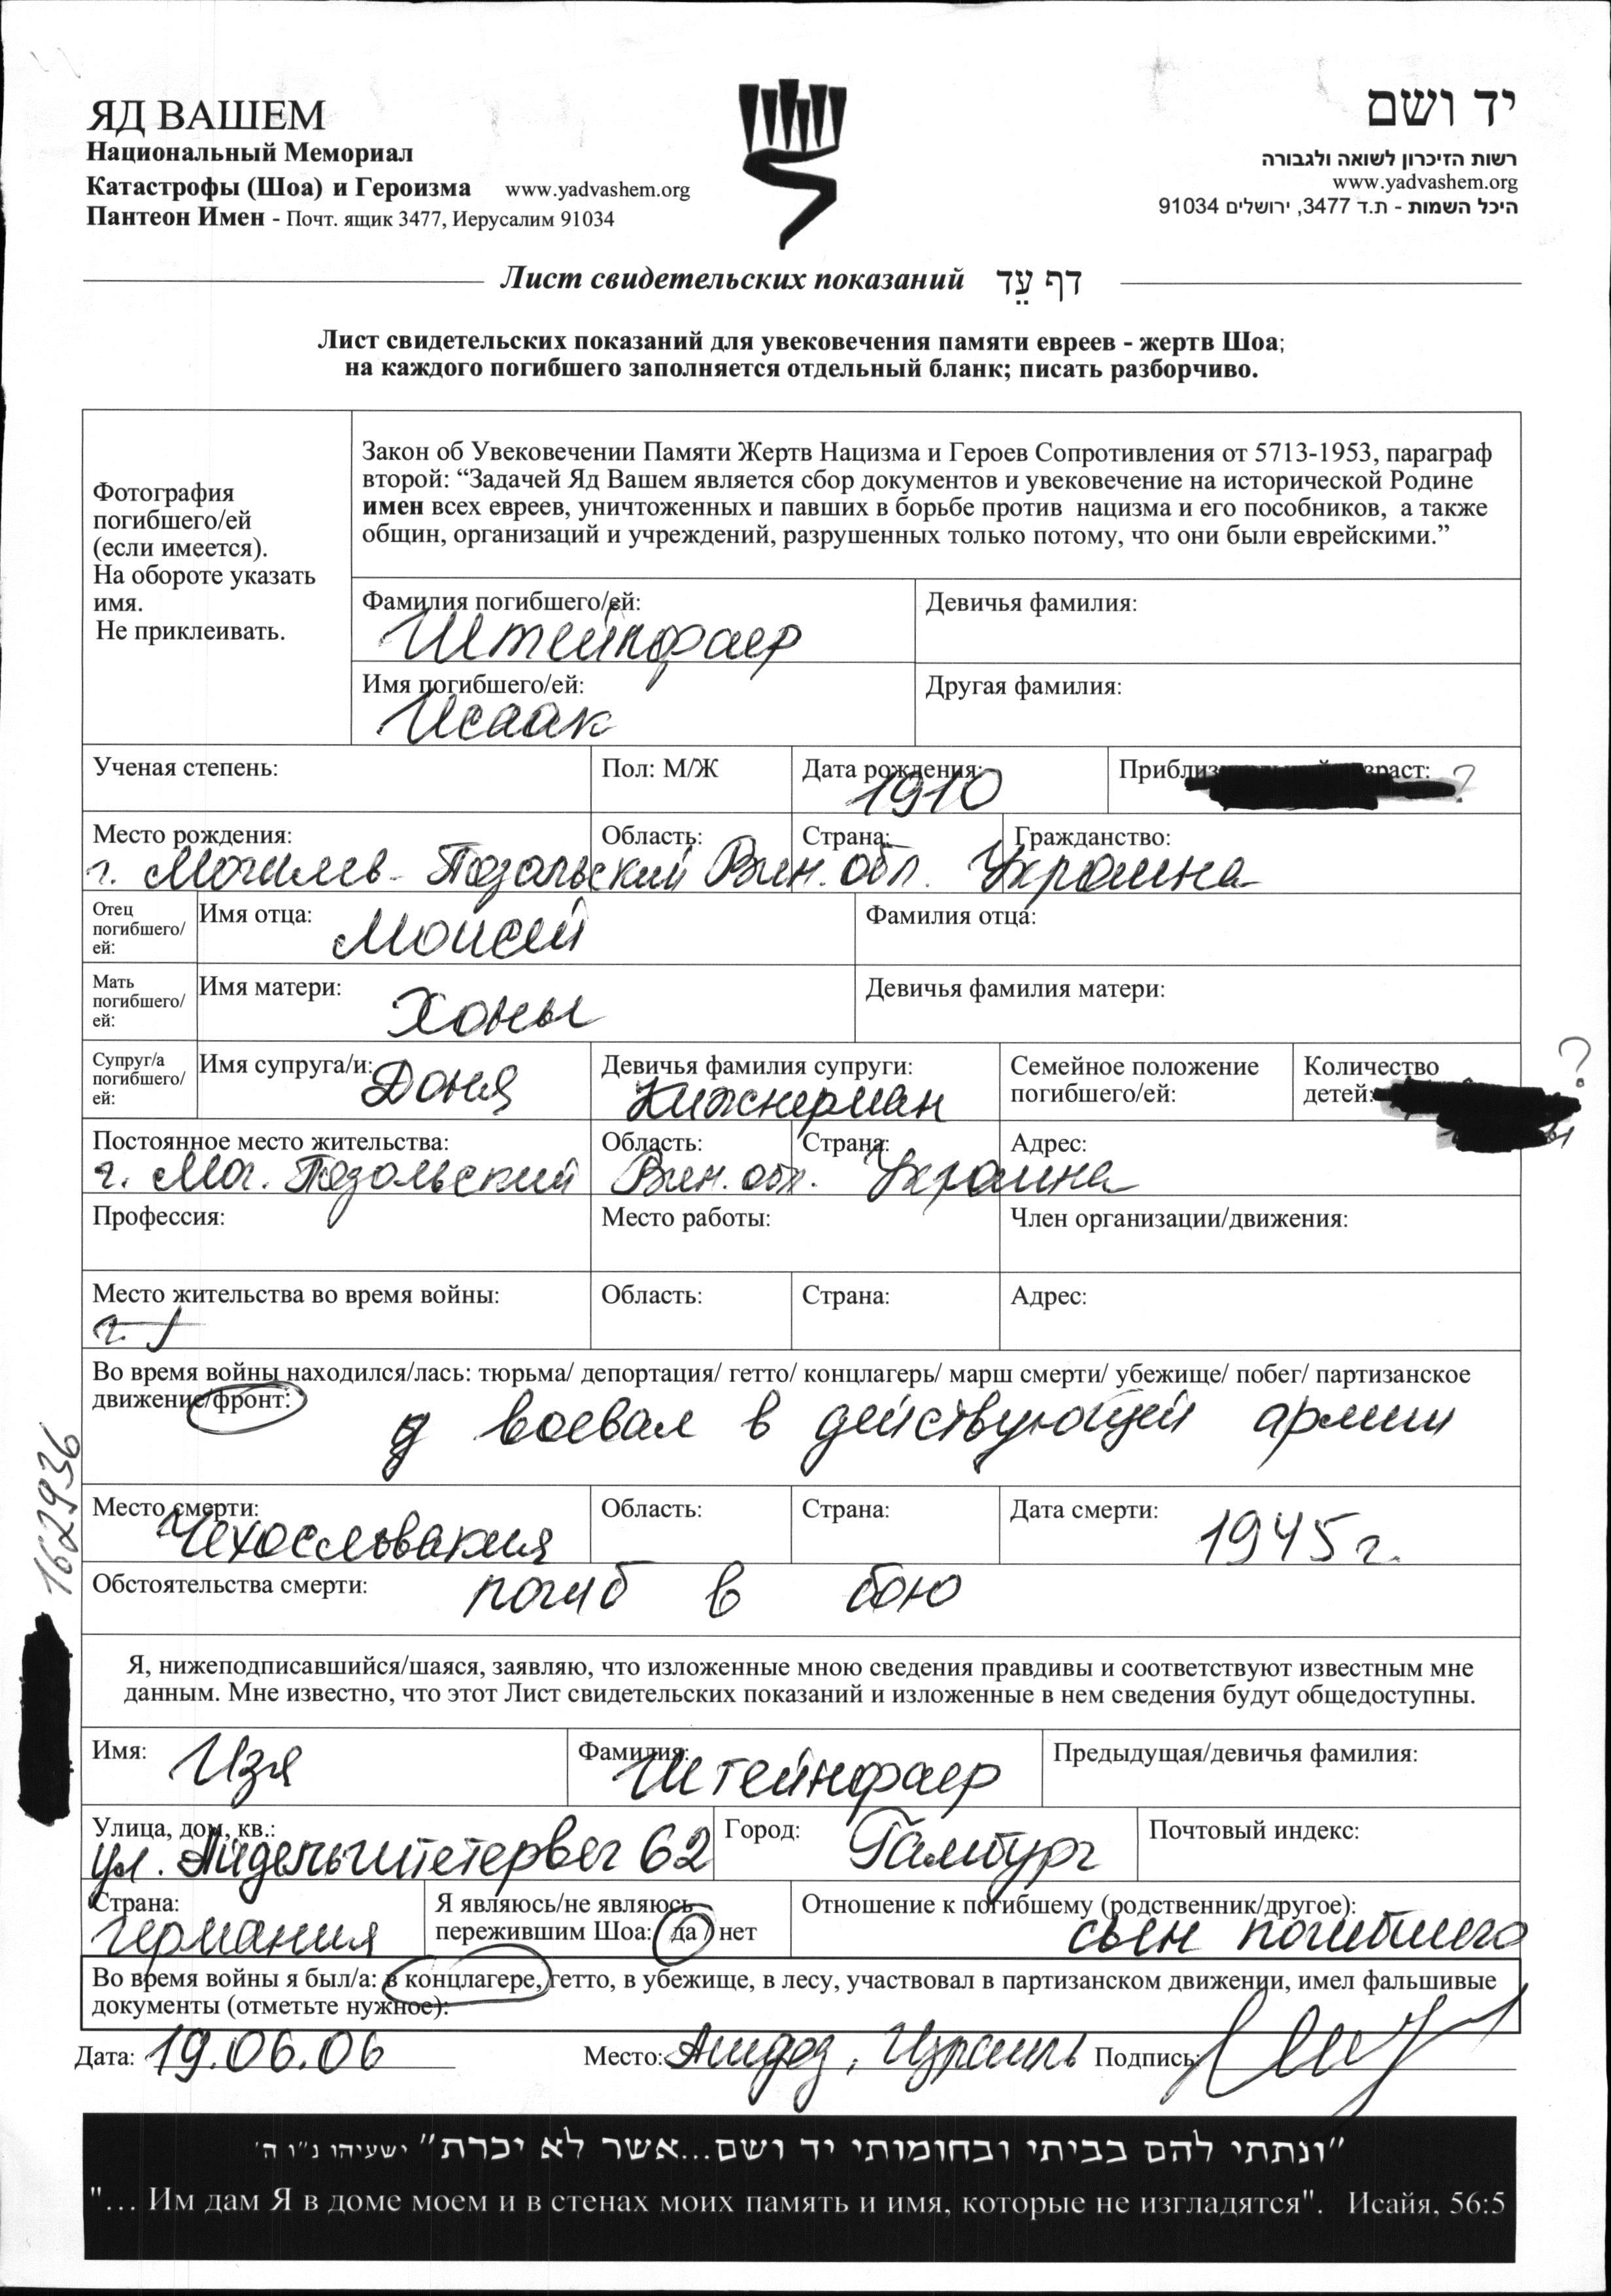 ЯД ВАШЕМ
Национальный Мемориал
Катастрофы (Шоа) и Героизма www.yadvashem.org
Пантеон Имен - Почт. ящик 3477, Иерусалим 91034
יד ושם
רשות הזיכרון לשואה ולגבורה
www.yadvashem.org
היכל השמות - ת.ד 3477, ירושלים 91034
Лист свидетельских показаний דף עֵד
Лист свидетельских показаний для увековечения памяти евреев - жертв Шоа;
на каждого погибшего заполняется отдельный бланк; писать разборчиво.
Фотография
погибшего/ей
(если имеется).
На обороте указать
имя.
Не приклеивать.
Закон об Увековечении Памяти Жертв Нацизма и Героев Сопротивления от 5713-1953, параграф
второй: “Задачей Яд Вашем является сбор документов и увековечение на исторической Родине
имен всех евреев, уничтоженных и павших в борьбе против нацизма и его пособников, а также
общин, организаций и учреждений, разрушенных только потому, что они были еврейскими.”
Фамилия погибшего/ей: Девичья фамилия:
Штейнфаер
Имя погибшего/ей: Другая фамилия:
Исаак
Ученая степень: Пол: М/Ж Дата рождения: 1910 ?
Место рождения: Область: Страна: Гражданство:
г. Могилев-Подольский Вин. обл. Украина
Отец
погибшего/
ей:
Имя отца: Моисей Фамилия отца:
Мать
погибшего/
ей:
Имя матери: Хоны Девичья фамилия матери:
Супруг/а
погибшего/
ей:
Имя супруга/и: Доня
Девичья фамилия супруги:
Нижнерман
Семейное положение
погибшего/ей:
Количество
детей: ?
Постоянное место жительства: Область: Страна: Адрес:
г. Мог. Подольский Вин. обл. Украина
Профессия: Место работы: Член организации/движения:
Место жительства во время войны: Область: Страна: Адрес:
г.
Во время войны находился/лась: тюрьма/ депортация/ гетто/ концлагерь/ марш смерти/ убежище/ побег/ партизанское
движение/фронт:
воевал в действующей армии
162936
Место смерти: Область: Страна: Дата смерти:
Чехословакия 1945 г.
Обстоятельства смерти: погиб в бою
Я, нижеподписавшийся/шаяся, заявляю, что изложенные мною сведения правдивы и соответствуют известным мне
данным. Мне известно, что этот Лист свидетельских показаний и изложенные в нем сведения будут общедоступны.
Имя: Изя Фамилия: Штейнфаер Предыдущая/девичья фамилия:
Улица, дом, кв.: Город: Почтовый индекс:
ул. 62 Гамбург
Страна:
Германия
Я являюсь/не являюсь
пережившим Шоа: да / нет
Отношение к погибшему (родственник/другое):
сын погибшего
Во время войны я был/а: в концлагере, гетто, в убежище, в лесу, участвовал в партизанском движении, имел фальшивые
документы (отметьте нужное):
Дата: 19.06.06 Место: Ашдод, Израиль Подпись:
"ונתתי להם בביתי ובחומותי יד ושם...אשר לא יכרת" ישעיהו נ"ו ה'
"... Им дам Я в доме моем и в стенах моих память и имя, которые не изгладятся". Исайя, 56:5